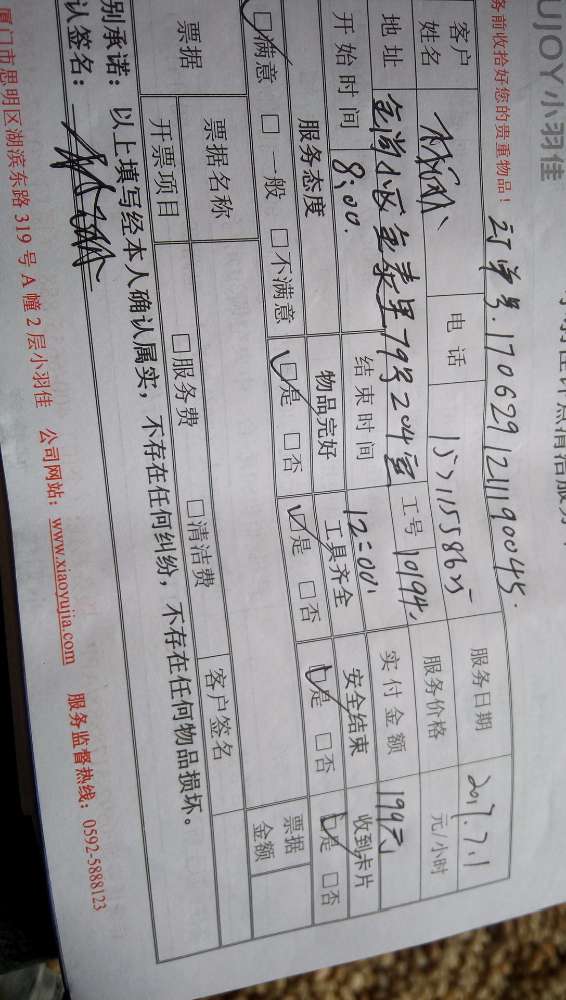 UJOY小羽佳
务前收拾好您的贵重物品!
订单号.1706291211190045.
客户姓名 电话 服务日期 2017.7.1
地址 金尚小区金泰里79号204室 工号 10194 服务价格 元/小时
开始时间 8:00. 结束时间 12:00 实付金额 199元
服务态度 物品完好 工具齐全 安全结束 收到卡片
☑满意 □一般 □不满意 ☑是 □否 ☑是 □否 ☑是 □否 ☑是 □否
票据 票据名称 客户签名 票据金额
开票项目 □服务费 □清洁费
别承诺：以上填写经本人确认属实，不存在任何纠纷，不存在任何物品损坏。
认签名：
厦门市思明区湖滨东路319号A幢2层小羽佳 公司网站：www.xiaoyujia.com 服务监督热线：0592-5888123